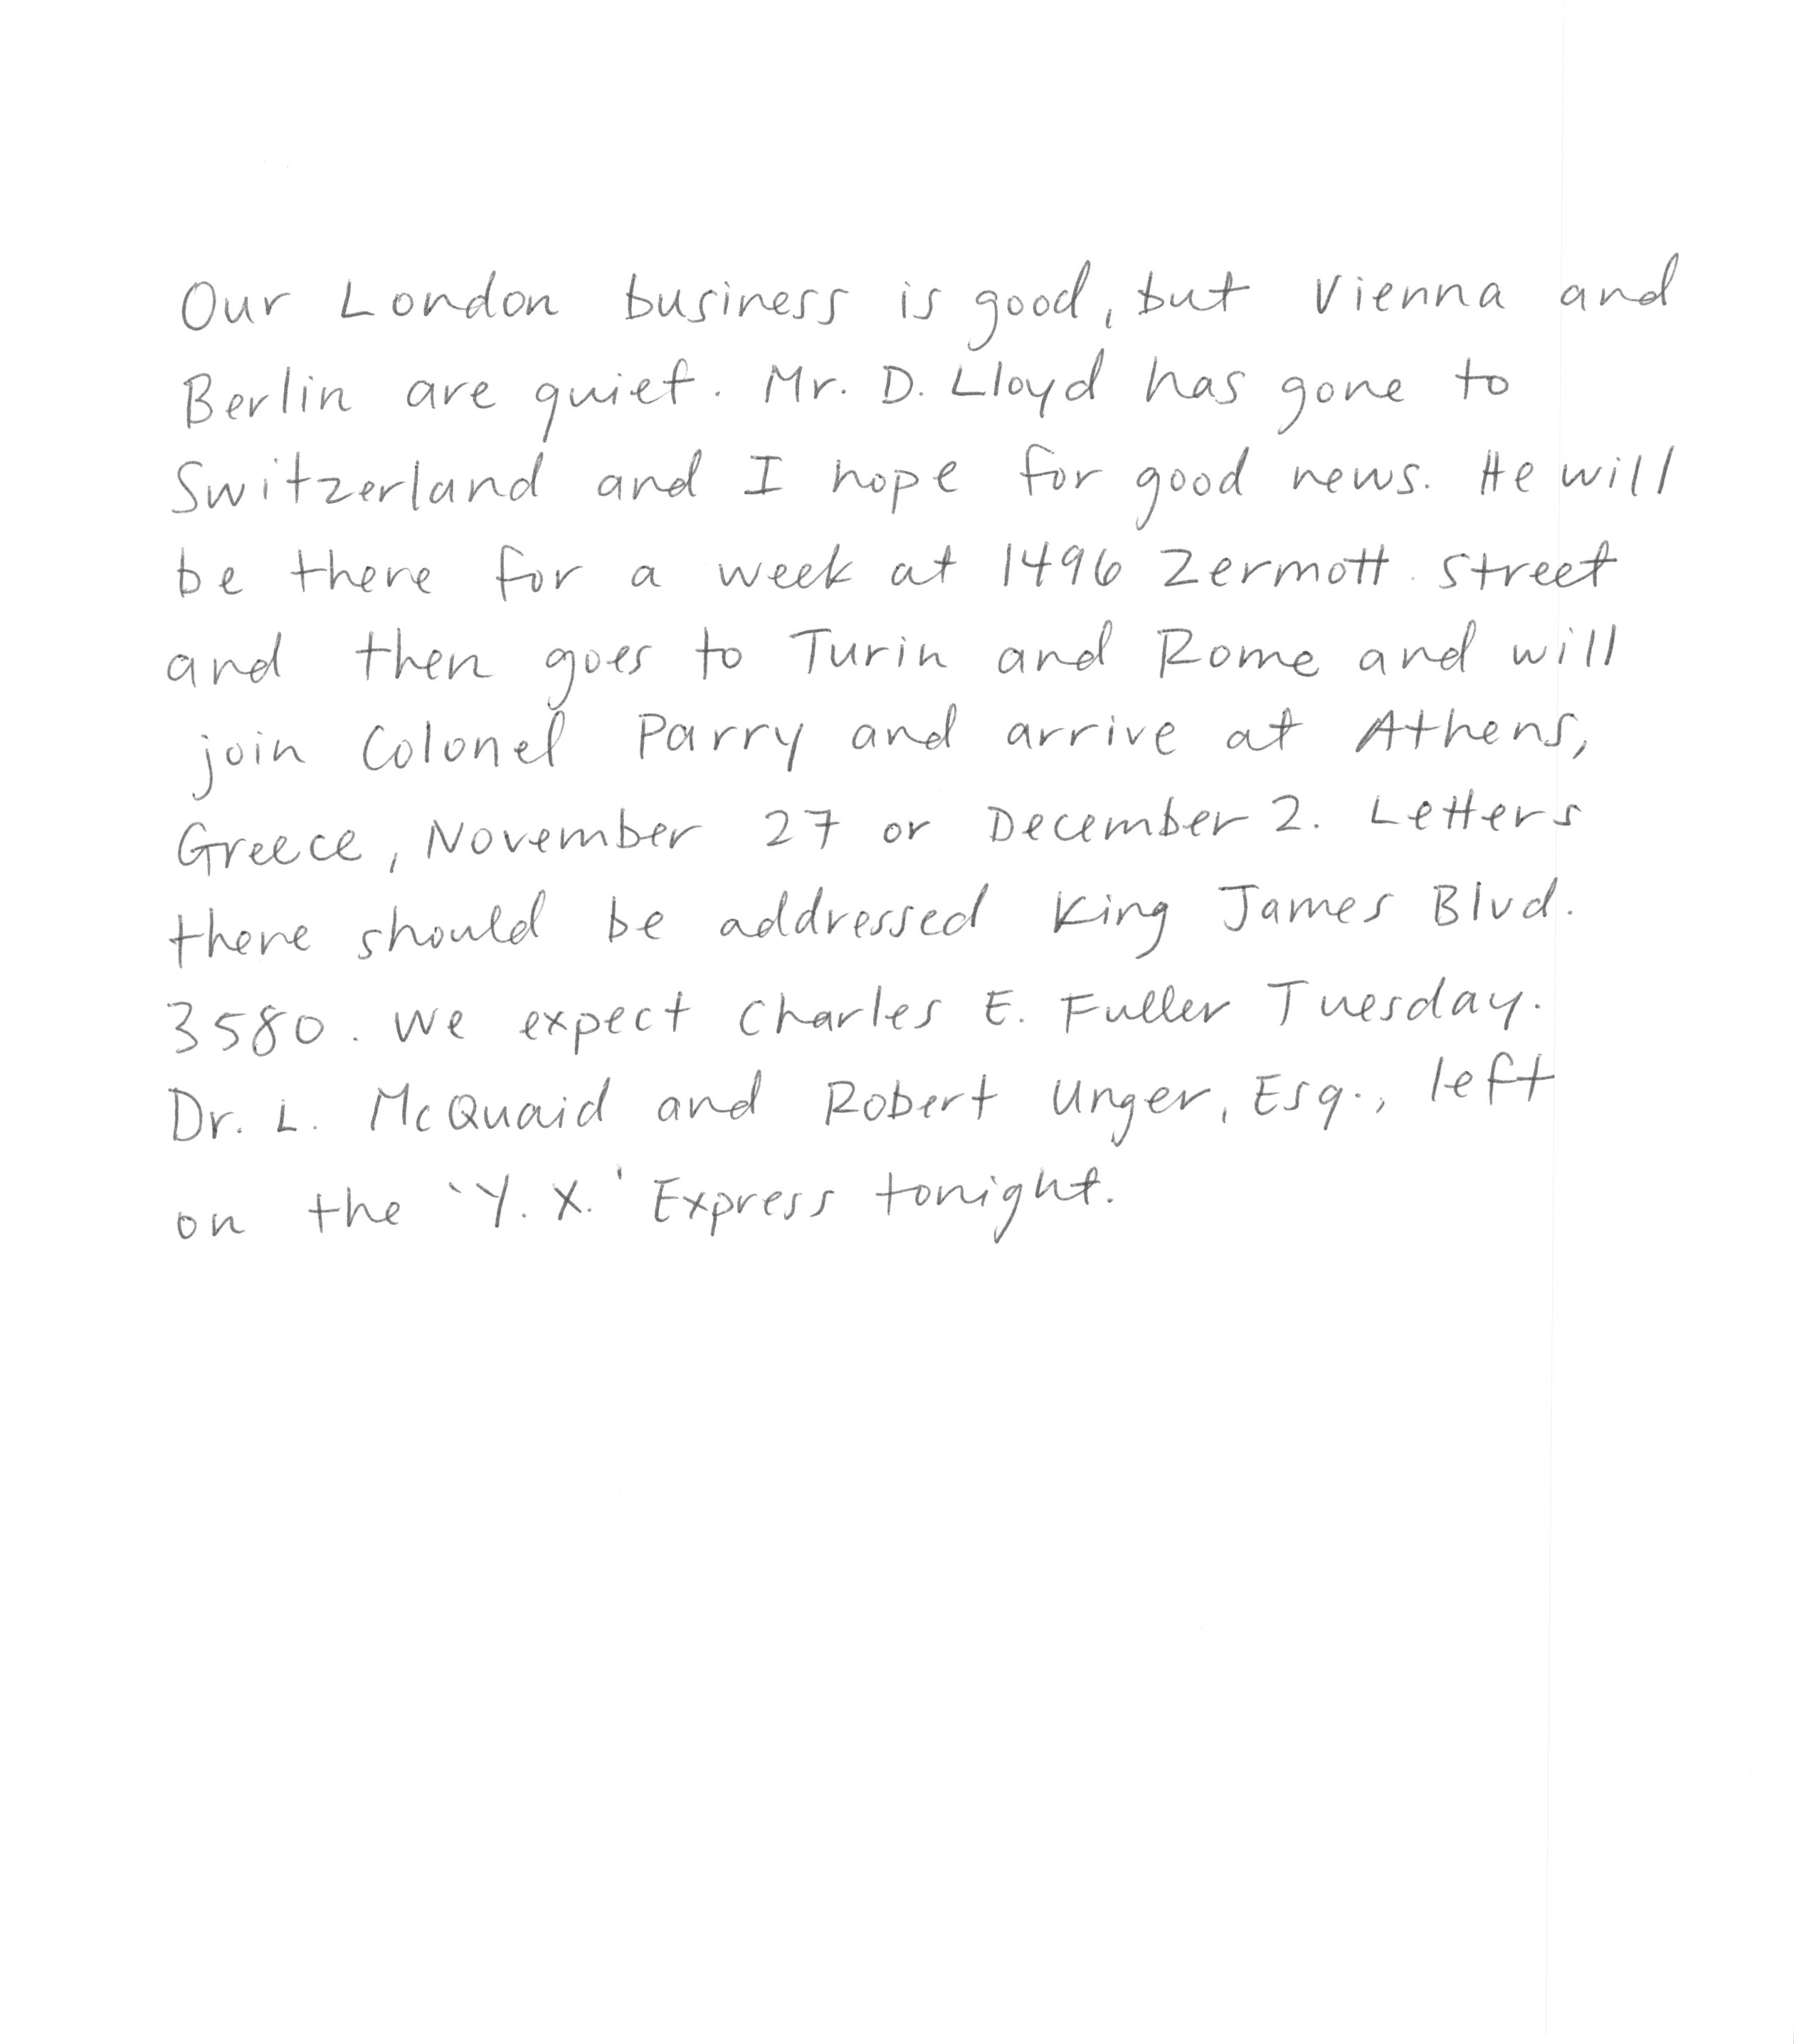 Our London business is good, but Vienna and
Berlin are quiet. Mr. D. Lloyd has gone to
Switzerland and I hope for good news. He will
be there for a week at 1496 Zermott street
and then goes to Turin and Rome and will
join Colonel Parry and arrive at Athens,
Greece, November 27 or December 2. Letters
there should be addressed King James Blvd.
3580. We expect Charles E. Fuller Tuesday.
Dr. L. McQuaid and Robert Unger, Esq., left
on the 'Y. X.' Express tonight.